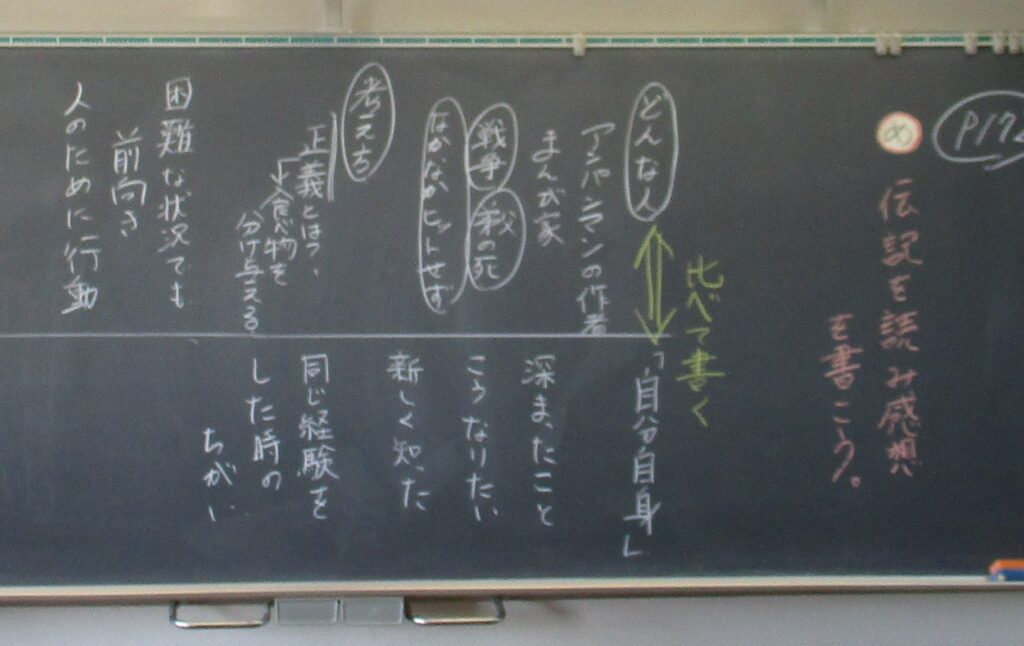 め
伝記を読み感想
を書こう。
比べて書く
どんな人
アンパンマンの作者
まんが家
戦争 弟の死
なかなかヒットせず
考え方
正義とは?、
食べ物を
分け与える
困難な状況でも
前向き
人のために行動
「自分自身」
深まったこと
こうなりたい
新しく知った
同じ経験を
した時の
ちがい